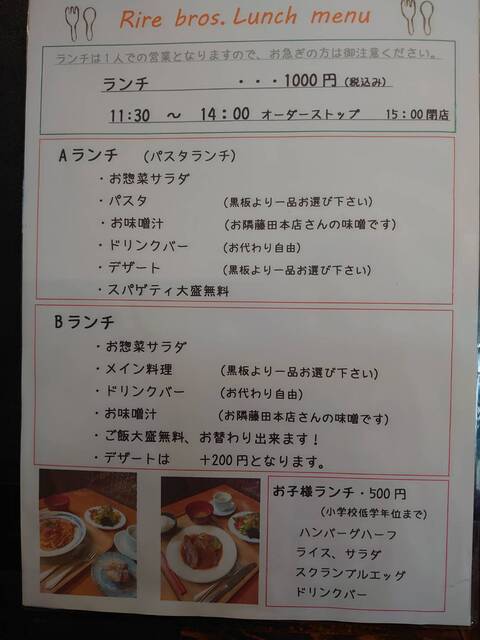 Rire bros. Lunch menu
ランチは１人での営業となりますので、お急ぎの方は御注意ください。
ランチ ・・・1000円（税込み）
11:30 ～ 14:00 オーダーストップ 15:00閉店
Aランチ （パスタランチ）
・お惣菜サラダ
・パスタ （黒板より一品お選び下さい）
・お味噌汁 （お隣藤田本店さんの味噌です）
・ドリンクバー （お代わり自由）
・デザート （黒板より一品お選び下さい）
・スパゲティ大盛無料
Bランチ
・お惣菜サラダ
・メイン料理 （黒板より一品お選び下さい）
・ドリンクバー （お代わり自由）
・お味噌汁 （お隣藤田本店さんの味噌です）
・ご飯大盛無料、お替わり出来ます！
・デザートは ＋200円となります。
お子様ランチ・500円
（小学校低学年位まで）
ハンバーグハーフ
ライス、サラダ
スクランブルエッグ
ドリンクバー